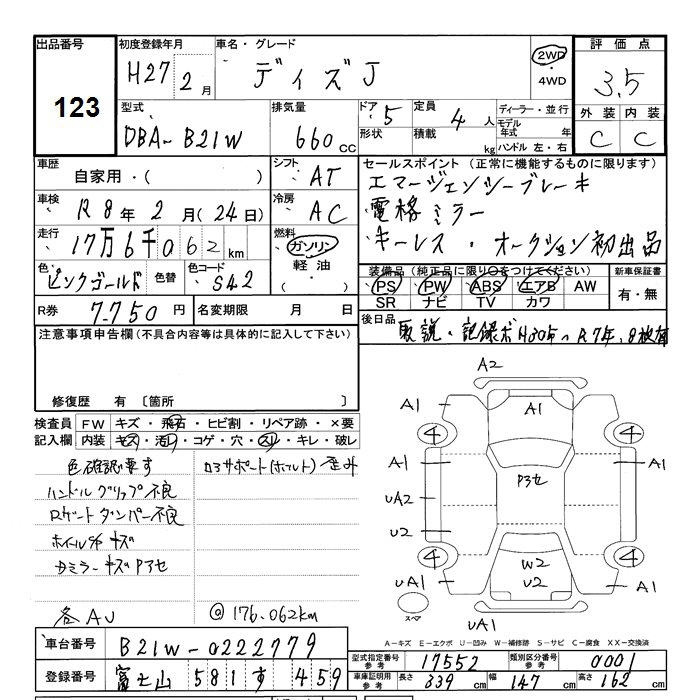 出品番号 初度登録年月 車名・グレード 2WD 評価点
123 H27 2月 デイズJ ・4WD 3.5
型式 排気量 ドア 定員 ディーラー・並行 外装 内装
DBA-B21W 660cc 5 4人 モデル年式 年 C C
形状 積載 kg ハンドル 左・右
車歴 シフト セールスポイント（正常に機能するものに限ります）
自家用・（ ） AT エマージェンシーブレーキ
車検 冷房 電格ミラー
R8年2月（24日） AC キーレス・オークション初出品
走行 燃料
17万6千062km ガソリン 軽油・（ ）
装備品（純正品に限り○をつけてください） 新車保証書
色 色替 色コード PS PW ABS エアB AW 有・無
ピンクゴールド S42 SR ナビ TV カワ
R券 7750円 名変期限 月 日 後日品
取説・記録ボH30年〜R7年、8枚有
注意事項申告欄（不具合内容等は具体的に記入して下さい）
修復歴 有〔箇所 〕
検査員記入欄 FW キズ・飛石・ヒビ割・リペア跡・×要
内装 キズ・汚レ・コゲ・穴・スレ・キレ・破レ
色確認要す ロアサポート(ホルト)歪み
ハンドルグリップ不良
Rゲートダンパー不良
ホイール キズ
ミラーキズ
各AU @176.062km
A2
A1 A1 A1
4 4
A1 P3セ A1
UA2
U2
4 4
UA1 W2 U2 A1
スペア UA1
A－キズ E－エクボ U－凹み W－補修跡 S－サビ C－腐食 XX－交換済
車台番号 B21W-0222779 型式指定番号 参考 17552 類別区分番号 参考 0001
登録番号 富士山 581 す 459 車庫証明用 参考 長さ 339cm 幅 147cm 高さ 162cm